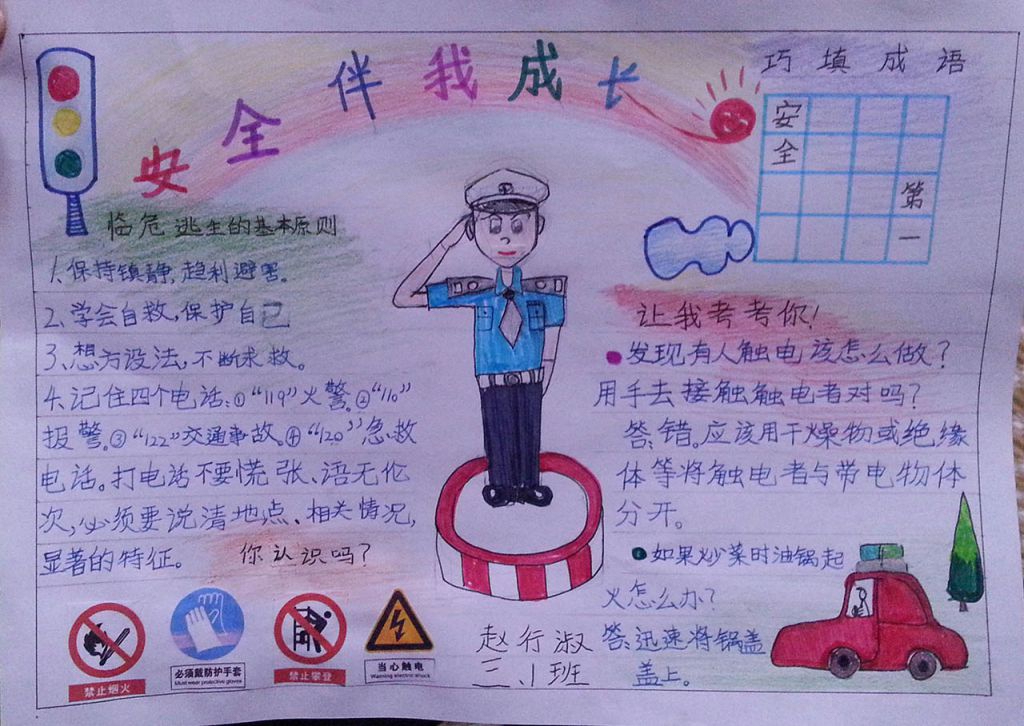 安全伴我成长
巧填成语
安
全
第
一
临危逃生的基本原则
1、保持镇静,趋利避害。
2、学会自救,保护自己
3、想方设法,不断求救。
4、记住四个电话:①“119”火警。②“110”
报警。③“122”交通事故。④“120”急救
电话。打电话不要慌张、语无伦
次,必须要说清地点、相关情况,
显著的特征。
你认识吗?
禁止烟火
必须戴防护手套
Must wear protective gloves
禁止攀登
当心触电
Warning electric shock
让我考考你!
发现有人触电该怎么做?
用手去接触触电者对吗?
答:错。应该用干燥物或绝缘
体等将触电者与带电物体
分开。
如果炒菜时油锅起
火怎么办?
答:迅速将锅盖
盖上。
赵行淑
三.1班